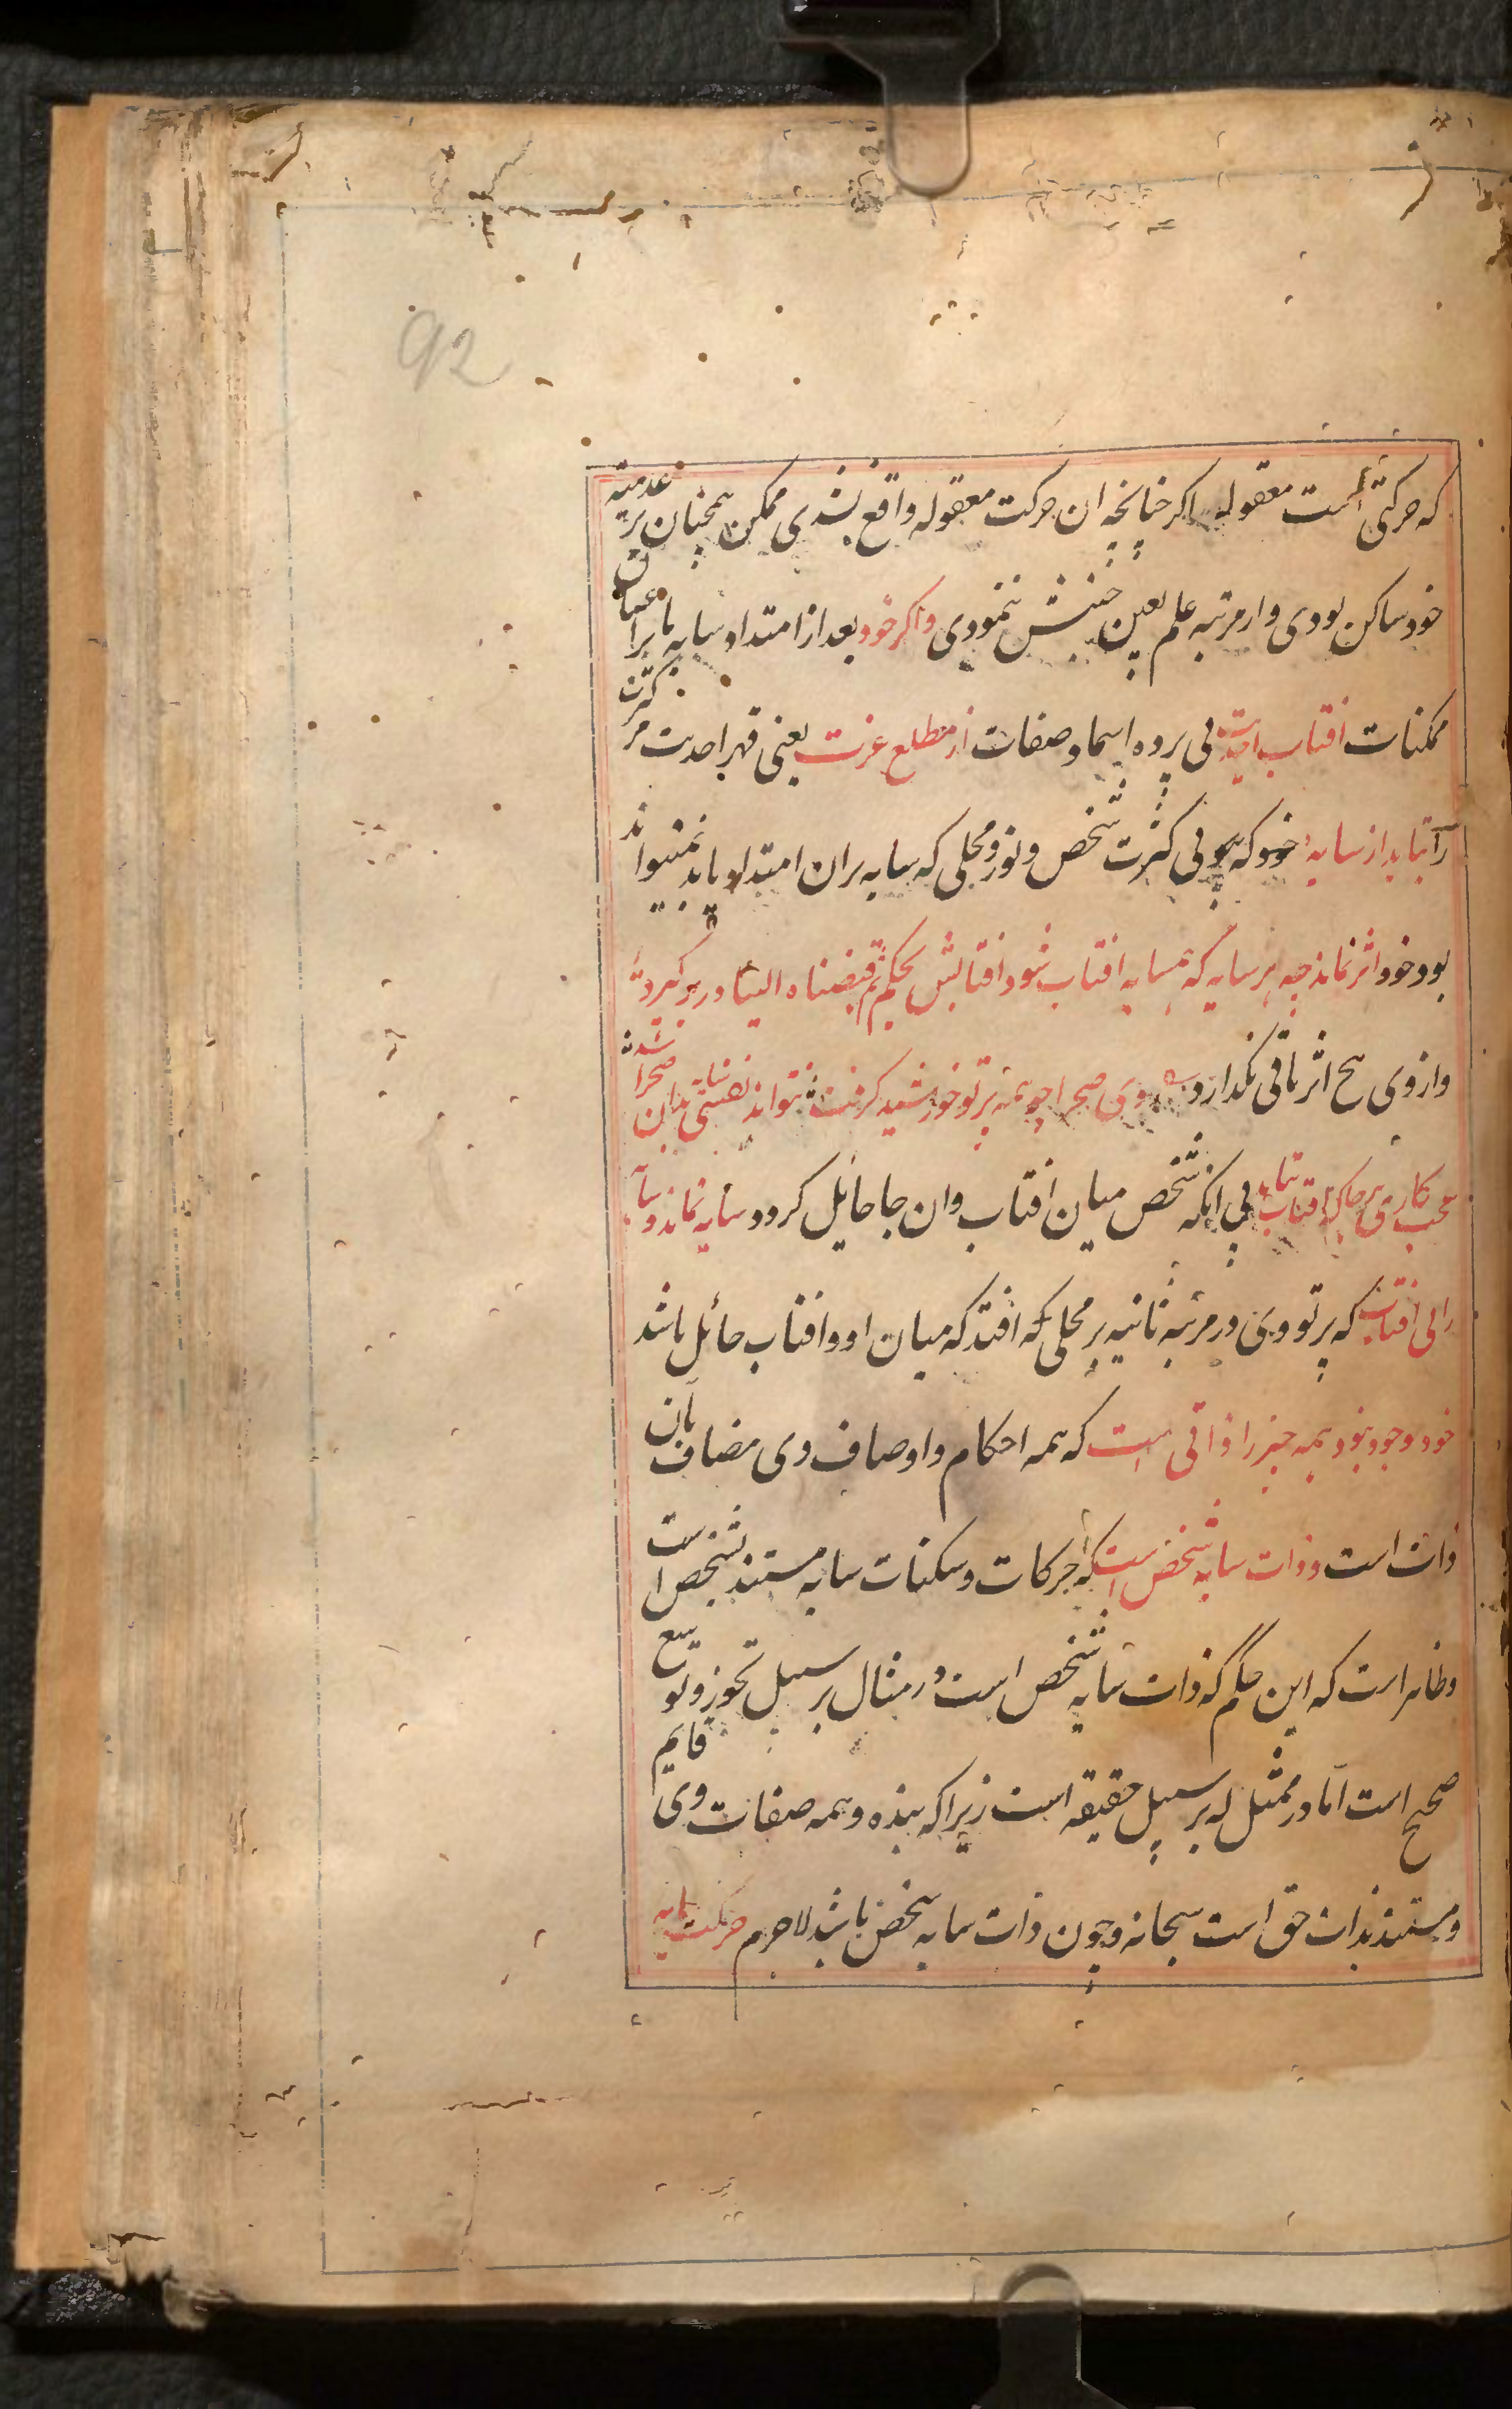 92
که حرکتی است معقوله اکر چنانچه ان حرکت معقوله واقع نشدی ممکن همچنان بر عدمیته
خود ساکن بودی و از مرتبه علم بعین جنبش ننمودی واکر خود بعد از امتداد سایه بر اعیان
ممکنات افتاب احدیت بی پرده اسما و صفات از مطلع عزت یعنی قهر احدیت مر کثرت
را بتابد از سایه خود که بی کثرت شخص و نور و محلی که سایه بران امتداد یابد نمیتواند
بود خود اثر نماند چه هر سایه که همسایه افتاب شود افتابش بحکم ثم قبضناه الینا در بر کیرد
و از وی هیچ اثر باقی نکذارد روی صحرا چو همه پرتو خورشید کرفت نتواند نفسی سایه بدان صحرا شد
عجب کاری هر جا که افتاب بتابد بی انکه شخص میان افتاب و ان جا حائل کردد سایه نماند و سایه
را بی افتاب که پرتو وی در مرتبه ثانیه بر محلی که افتد که میان او و افتاب حائل باشد
خود وجود نبود همه چیز را ذاتی است که همه احکام و اوصاف وی مضاف بان
ذات است و ذات سایه شخص است که حرکات و سکنات سایه مستند بشخص است
و ظاهر است که این حکم که ذات سایه شخص است در مثال بر سبیل تجوز و توسع
صحیح است اما در ممثل له بر سبیل حقیقه است زیرا که بنده و همه صفات وی قایم
و مستند بذات حق است سبحانه و چون ذات سایه شخص باشد لاجرم حرکت سایه